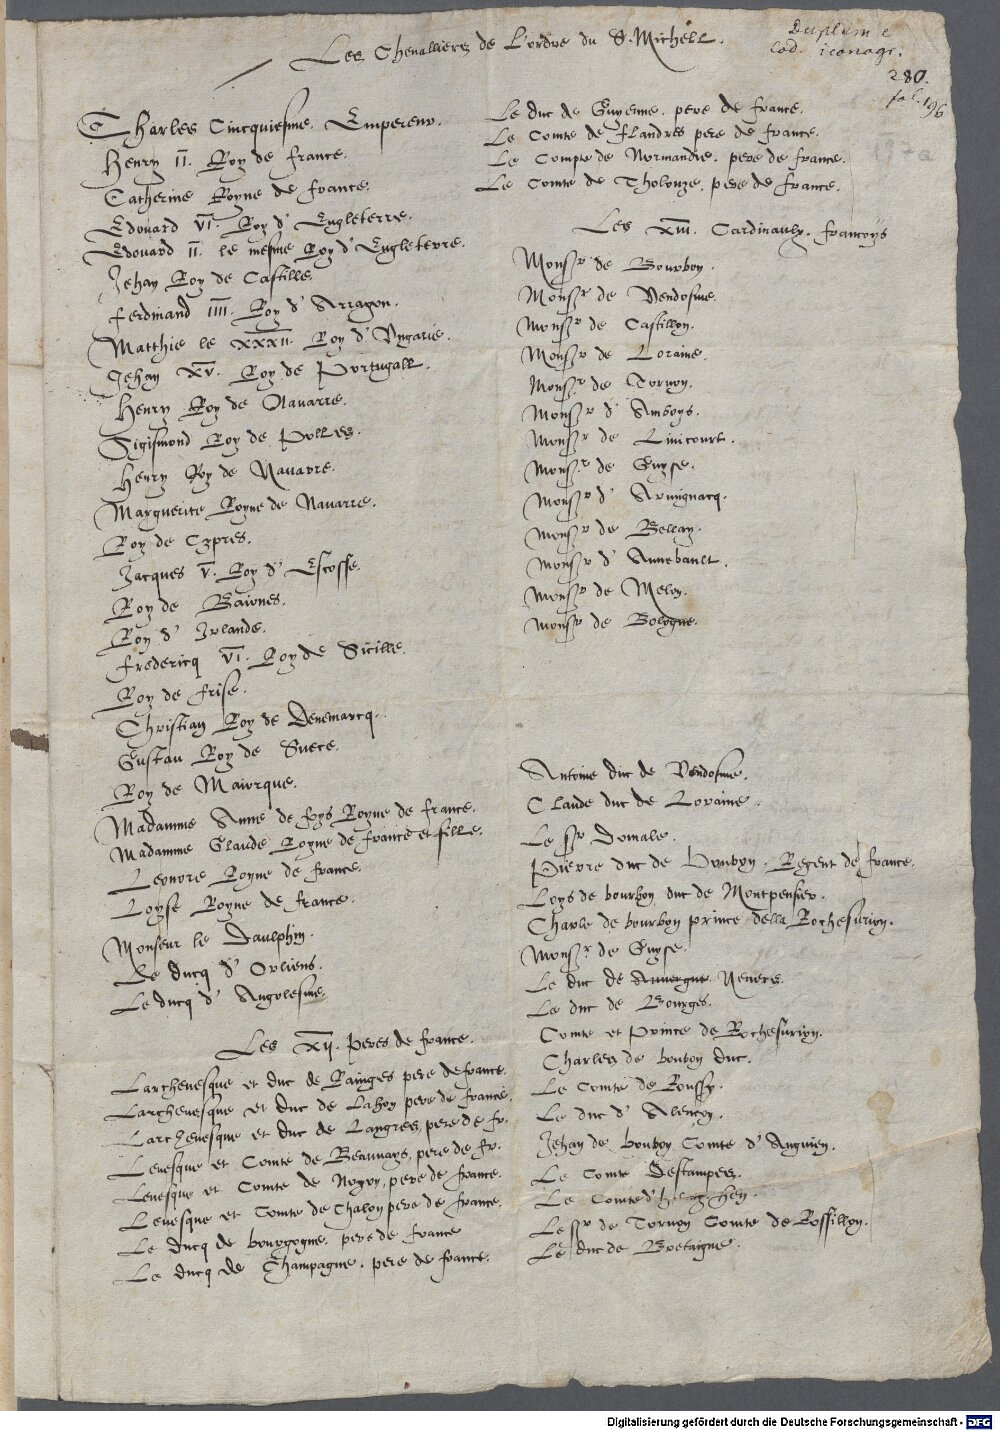 Les Chevalliers de L'ordre du S. Michell.
Duplum e
Cod. iconogr.
280.
fol. 196
197a
Charles Cincquiesme. Empereur.
Henry II. Roy de france.
Catherine Royne de france.
Edouard VI. Roy d' Engleterre.
Edouard II. le mesme Roy d' Engleterre.
Jehan Roy de Castille.
ferdinand IIII. Roy d' Arragon.
Matthie le XXXII Roy d' Vngarie.
Jehan XV. Roy de Portugall.
Henry Roy de Nauarre.
Sigismond Roy de Polles.
Henry Roy de Nauarre.
Marguerite Royne de Nauarre.
Roy de Cypres.
Jacques V. Roy d' Escosse.
Roy de
Roy d' Jrlande.
fredericq VI. Roy de Sicille.
Roy de frise.
Christian Roy de Denemarcq.
Gustau Roy de Suece.
Roy de Maiorque.
Madamme Anne de foys Royne de france.
Madamme Glaude Royne de france et fille.
Leonore Royne de france.
Loyse Royne de france.
Monseur le Daulphin.
Le ducq d' Orliens.
Le ducq d' Angolesme.
Les XII. Peres de france.
Larcheuesque et duc de Rainges pere de france.
Larcheuesque et duc de Lahon pere de france.
Larcheuesque et duc de Langres, pere de fr.
Leuesque et Comte de Beauuays, pere de fr.
Leuesque et Comte de Noyon, pere de france.
Leuesque et Comte de Chalon pere de france.
Le ducq de bourgogne. pere de france
Le ducq de Champagne. pere de france.
Le duc de Guyenne. pere de france.
Le Comte de flandres pere de france.
Le Compte de Normandie. pere de france.
Le Comte de Tholouze. pere de france.
Les XIII. Cardinaulx. francoys
Monsr de Bourbon.
Monsr de Vendosme.
Monsr de Castillon.
Monsr de Loraine.
Monsr de Tornon.
Monsr d' Amboys.
Monsr de Linicourt.
Monsr de Guyse.
Monsr d' Armignacq.
Monsr de Bellay.
Monsr d' Annebault.
Monsr de Melon.
Monsr de Bologne.
Antoine duc de Vendosme.
Claude duc de Loraine.
Le Sr Domale.
Pierre duc de Bourbon. Regent de france.
Loys de bourbon duc de Montpensier.
Charle de bourbon prince della Rochesurion.
Monsr de Guyse.
Le duc de Auuergne Neuers.
Le duc de Bourges.
Comte et Prince de Rochesurion.
Charles de bourbon duc.
Le Comte de Roussy.
Le duc d' Alencon.
Jehan de bourbon Comte d' Anguien.
Le Comte Destampes.
Le Comte
Le Sr de Tornon Comte de Rossillon.
Le duc de Bretaigne.
Digitalisierung gefördert durch die Deutsche Forschungsgemeinschaft - DFG